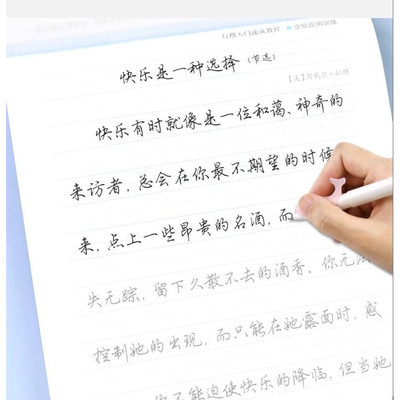 行楷入门速成教程
快乐是一种选择（节选）
快乐有时就像是一位和蔼、神奇的
来访者，总会在你最不期望的时候
来，点上一些昂贵的名酒，而
失无踪，留下久散不去的酒香。你无法
控制她的出现，而只能在她露面时，感
你不能迫使快乐的降临，但当她